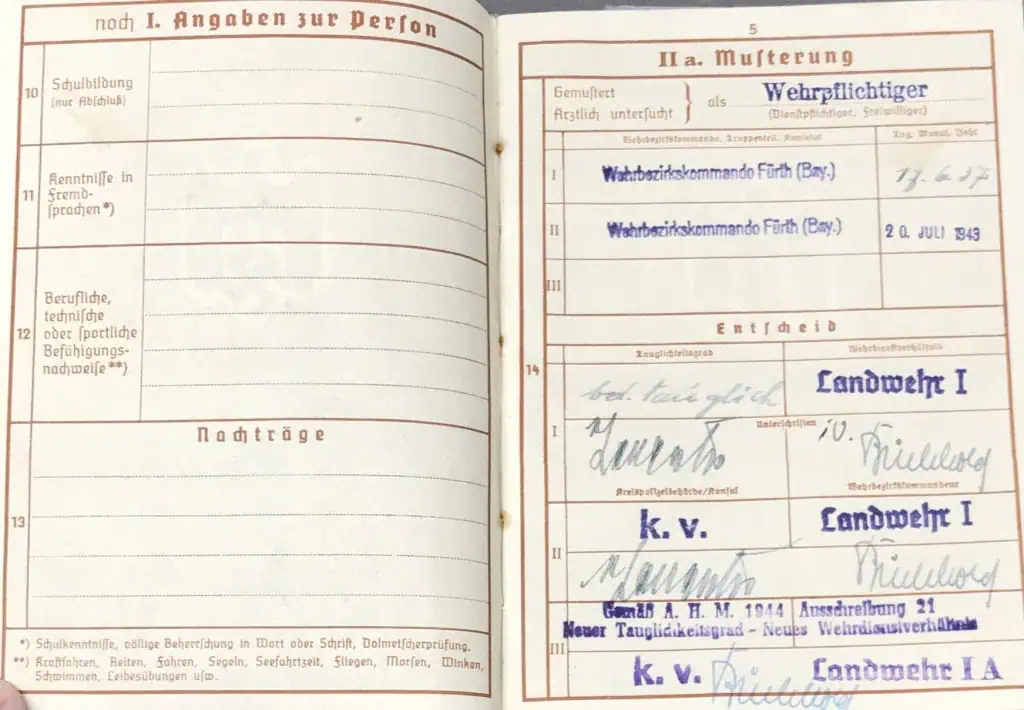 noch I. Angaben zur Person
10
Schulbildung
(nur Abschluß)
11
Kenntnisse in
Fremd-
sprachen*)
12
Berufliche,
technische
oder sportliche
Befähigungs-
nachweise**)
Nachträge
13
*) Schulkenntnisse, völlige Beherrschung in Wort oder Schrift, Dolmetscherprüfung.
**) Kraftfahren, Reiten, Fahren, Segeln, Seefahrtzeit, Fliegen, Morsen, Winken,
Schwimmen, Leibesübungen usw.
5
II a. Musterung
Gemustert
Ärztlich untersucht } als Wehrpflichtiger
(Dienstpflichtiger, Freiwilliger)
Wehrbezirkskommando, Truppenteil, Konsulat
Tag, Monat, Jahr
I Wehrbezirkskommando Fürth (Bay.) 17. 6. 37
II Wehrbezirkskommando Fürth (Bay.) 20. JULI 1943
III
Entscheid
14
Tauglichkeitsgrad
Wehrdienstverhältnis
bed. tauglich Landwehr I
I
Unterschriften
iV.
Kreispolizeibehörde/Konsul
Wehrbezirkskommandeur
k. v. Landwehr I
II
Gemäß A. H. M. 1944 Ausschreibung 21
Neuer Tauglichkeitsgrad - Neues Wehrdienstverhältnis
III
k. v. Landwehr I A